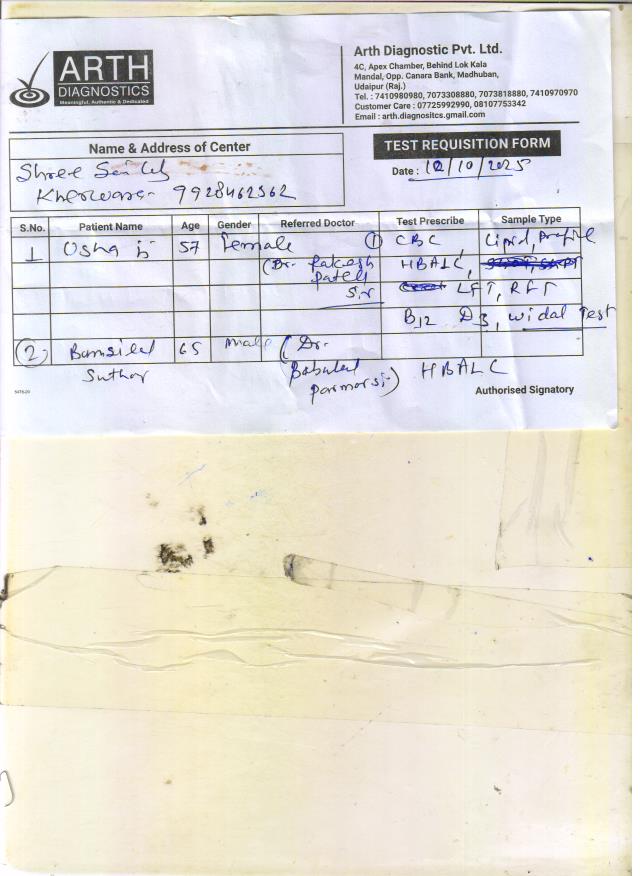 ARTH
DIAGNOSTICS
Meaningful, Authentic & Dedicated
Arth Diagnostic Pvt. Ltd.
4C, Apex Chamber, Behind Lok Kala
Mandal, Opp. Canara Bank, Madhuban,
Udaipur (Raj.)
Tel. : 7410980980, 7073308880, 7073818880, 7410970970
Customer Care : 07725992990, 08107753342
Email : arth.diagnositcs.gmail.com
Name & Address of Center
Shree
Kherwara 9928462562
TEST REQUISITION FORM
Date : 12/10/2025
S.No. Patient Name Age Gender Referred Doctor Test Prescribe Sample Type
1 Usha 57 Female ① CBC, Lipid, Profile
(Dr. Rakesh HBALC,
Patel
Sir LFT, RFT
B12 D3, widal Test
② Bansilal 65 Male (Dr.
Suthar Babulal HBALC
parmar sir)
Authorised Signatory